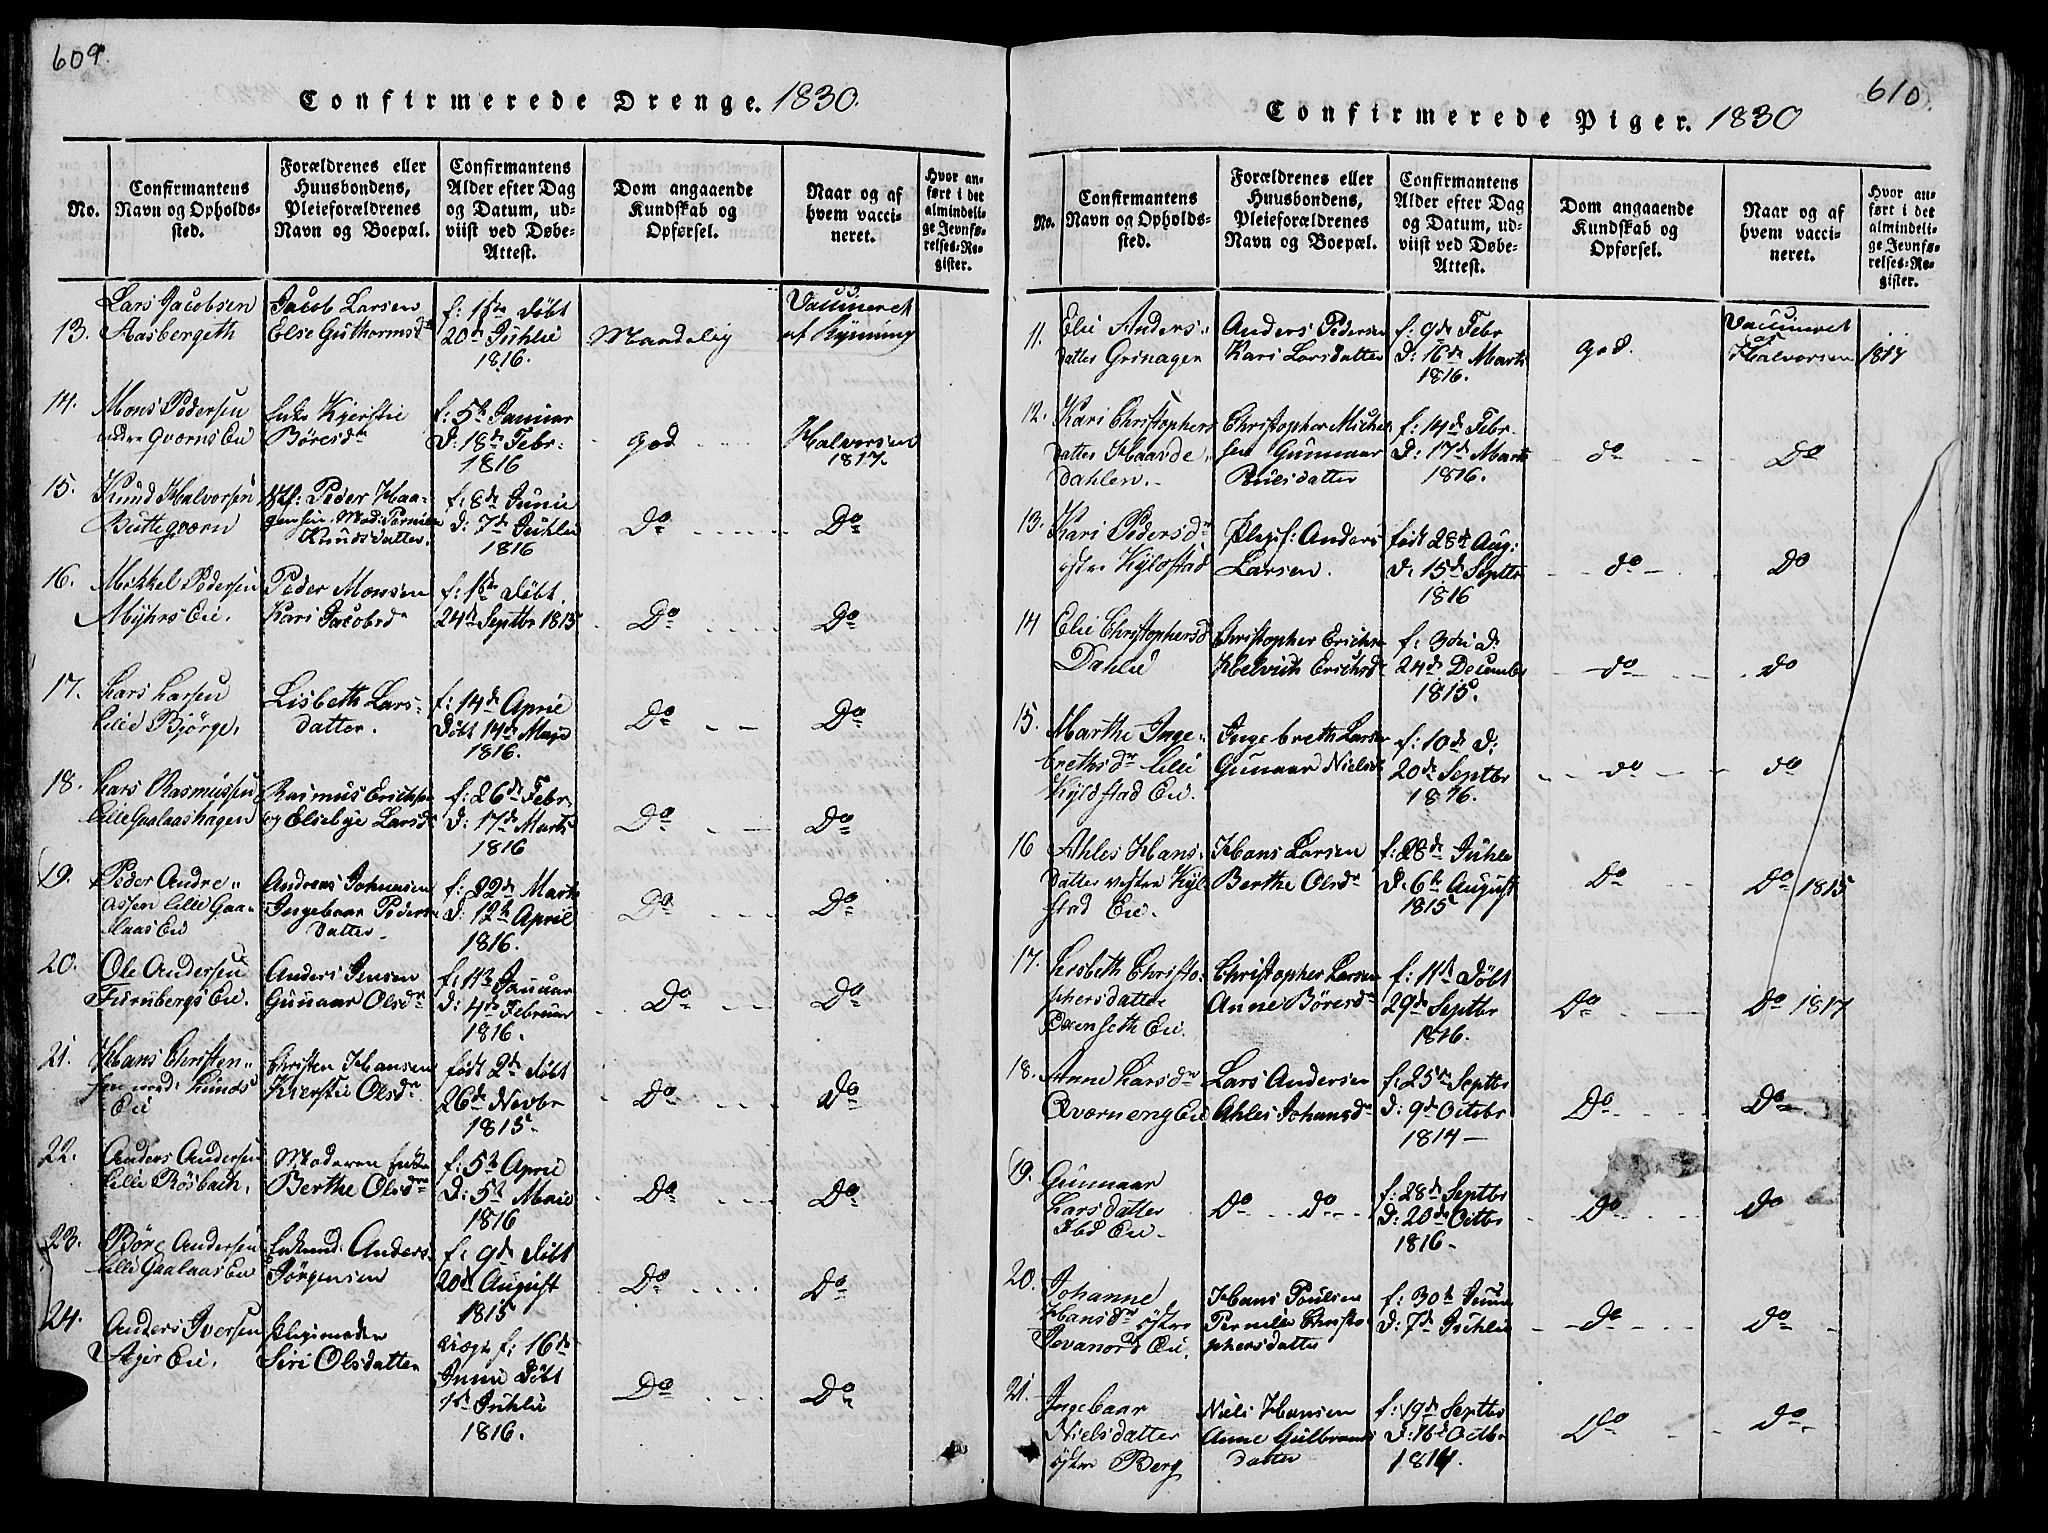 609.
Confirmerede Drenge. 1830.
No.
Confirmantens
Navn og Opholds-
sted.
Forældrenes eller
Huusbondens,
Pleieforældrenes
Navn og Boepæl.
Confirmantens
Alder efter Dag
og Datum, ud-
viist ved Døbe-
Attest.
Dom angaaende
Kundskab og
Opførsel.
Naar og af
hvem vacci-
neret.
Hvor an-
ført i det
almindeli-
ge Jevnfø-
relses-Re-
gister.
13.
Lars Jacobsen
Aasbergeth
Jacob Larsen
Else Guthormsdr
f: 1ste Døbt
20de Juhlii
1816.
Maadelig
Vaccineret
af Kynning
14.
Mons Pedersen
Qværns Eie
Enke Kjersti
Børesdr
f: 5te Januar
D: 18de Febr.
1816
god
Halvorsen
1817.
15.
Knud Halvorsen
Butteqværn
Peder Haa-
gensen. Mod: Pernille
Knudsdatter.
f: 8de Junii
D: 7de Juhlii
1816
Do
Do
16.
Mikkel Pedersen
Myhrs Eie.
Peder Monsen
Kari Jacobsdr
f: 1ste Døbt
24de Septbr 1815
Do
Do
17.
Lars Larsen
lille Bjørge.
Lisbeth Lars-
datter.
f: 14de April
Døbt 14de Maji
1816.
Do
Do
18.
Lars Rasmussen
lille Gaalaashagen
Rasmus Erichsen
og Elsebye Larsdr
f: 26de Febr.
D: 17de Marts
1816
Do
Do
19.
Peder Andre-
assen lille Gaa-
laas Eie
Andreas Johnnesen
Ingebaar Peders-
datter
f: 22de Marts
D: 12te April
1816.
Do
Do
20.
Ole Andersen
Furnbergs Eie.
Anders Jensen
Gunnar Olsdr
f: 11te Januar
D: 4de Februar
1816.
Do
Do
21.
Hans Christen-
sen nord: Lunds
Eie
Christen Hansen
Kierstie Olsdr
født 2den Døbt
26de Novbr
1815
Do
Do
22.
Anders Andersen
lille Røsbach.
Moderen Enke
Berthe Olsdr
f: 5te April
D: 5te Maii
1816
Do
Do
23.
Børe Andersen
lille Gaalaas Eie
Enkemd: Anders
Jørgensen
f: 9de Døbt
20de August
1815
Do
Do
24.
Anders Iversen
Ager Eie.
Pleiemoder
Siri Olsdatter
f: 16de
Junii Døbt
1ste Juhlii
1816.
Do
Do
610.
Confirmerede Piger. 1830
No.
Confirmantens
Navn og Opholds-
sted.
Forældrenes eller
Huusbondens,
Pleieforældrenes
Navn og Boepæl.
Confirmantens
Alder efter Dag
og Datum, ud-
viist ved Døbe-
Attest.
Dom angaaende
Kundskab og
Opførsel.
Naar og af
hvem vacci-
neret.
Hvor an-
ført i det
almindeli-
ge Jevnfø-
relses-Re-
gister.
11.
Elie Anders-
datter Grinagen
Anders Pedersen
Kari Larsdatter
f: 9de Febr
D: 16de Marts
1816.
god.
Vaccineret
af
Halvorsen 1817
12.
Kari Christophers
datter Haarde
Dahlen.
Christopher Michel
sen Gunnaar
Poulsdatter
f: 14de Febr.
D: 17de Marts
1816.
do
Do
13.
Kari Pedersdr
østre Kylstad
Pleief: Anders
Larsen.
født 28de Aug:
D: 15de Septbr
1816
do
Do
14
Elie Christophersdr
Dahlie
Christopher Erichs
Helvich Erichsdr
f: 3die D:
24de Decembr
1815.
do
do
15.
Marthe Inge-
brethsdr lille
Kylstad Eie.
Ingebreth Larsen
Gunnaar Nielsdr
f: 10de D:
20de Septbr
1816.
do
do
16
Ahles Hans-
datter vestre Kyl
stad Eie.
Hans Larsen
Berthe Olsdr
f: 28de Juhli
D: 6te August
1815
Do
Do 1815
17.
Lisbeth Christo-
phersdatter
Exenseth Eie.
Christopher Larsen
Anne Børesdr
f: 11te Døbt
29de Septbr
1816.
Do
Do 1817
18.
Anne Larsdr
Qværneng Eie
Lars Andersen
Ahles Johansdr
f: 25de Septbr
D: 9de Octbr
1814
Do
Do
19.
Gunnaar
Larsdatter
Ibd Eie.
Do do
f: 28de Septbr
D: 20de Octbr
1816.
Do
Do
20.
Johanne
Hansdr østre
Jevanord Eie.
Hans Poulsen
Pernille Christo
phersdatter
f: 30te Junii
D: 7de Juhlii
Do
Do
21.
Ingebaar
Nielsdatter
østre Berg
Niels Hansen
Anne Gulbrands
datter
f: 19de Septbr
D: 16de Octbr
1814.
Do
Do